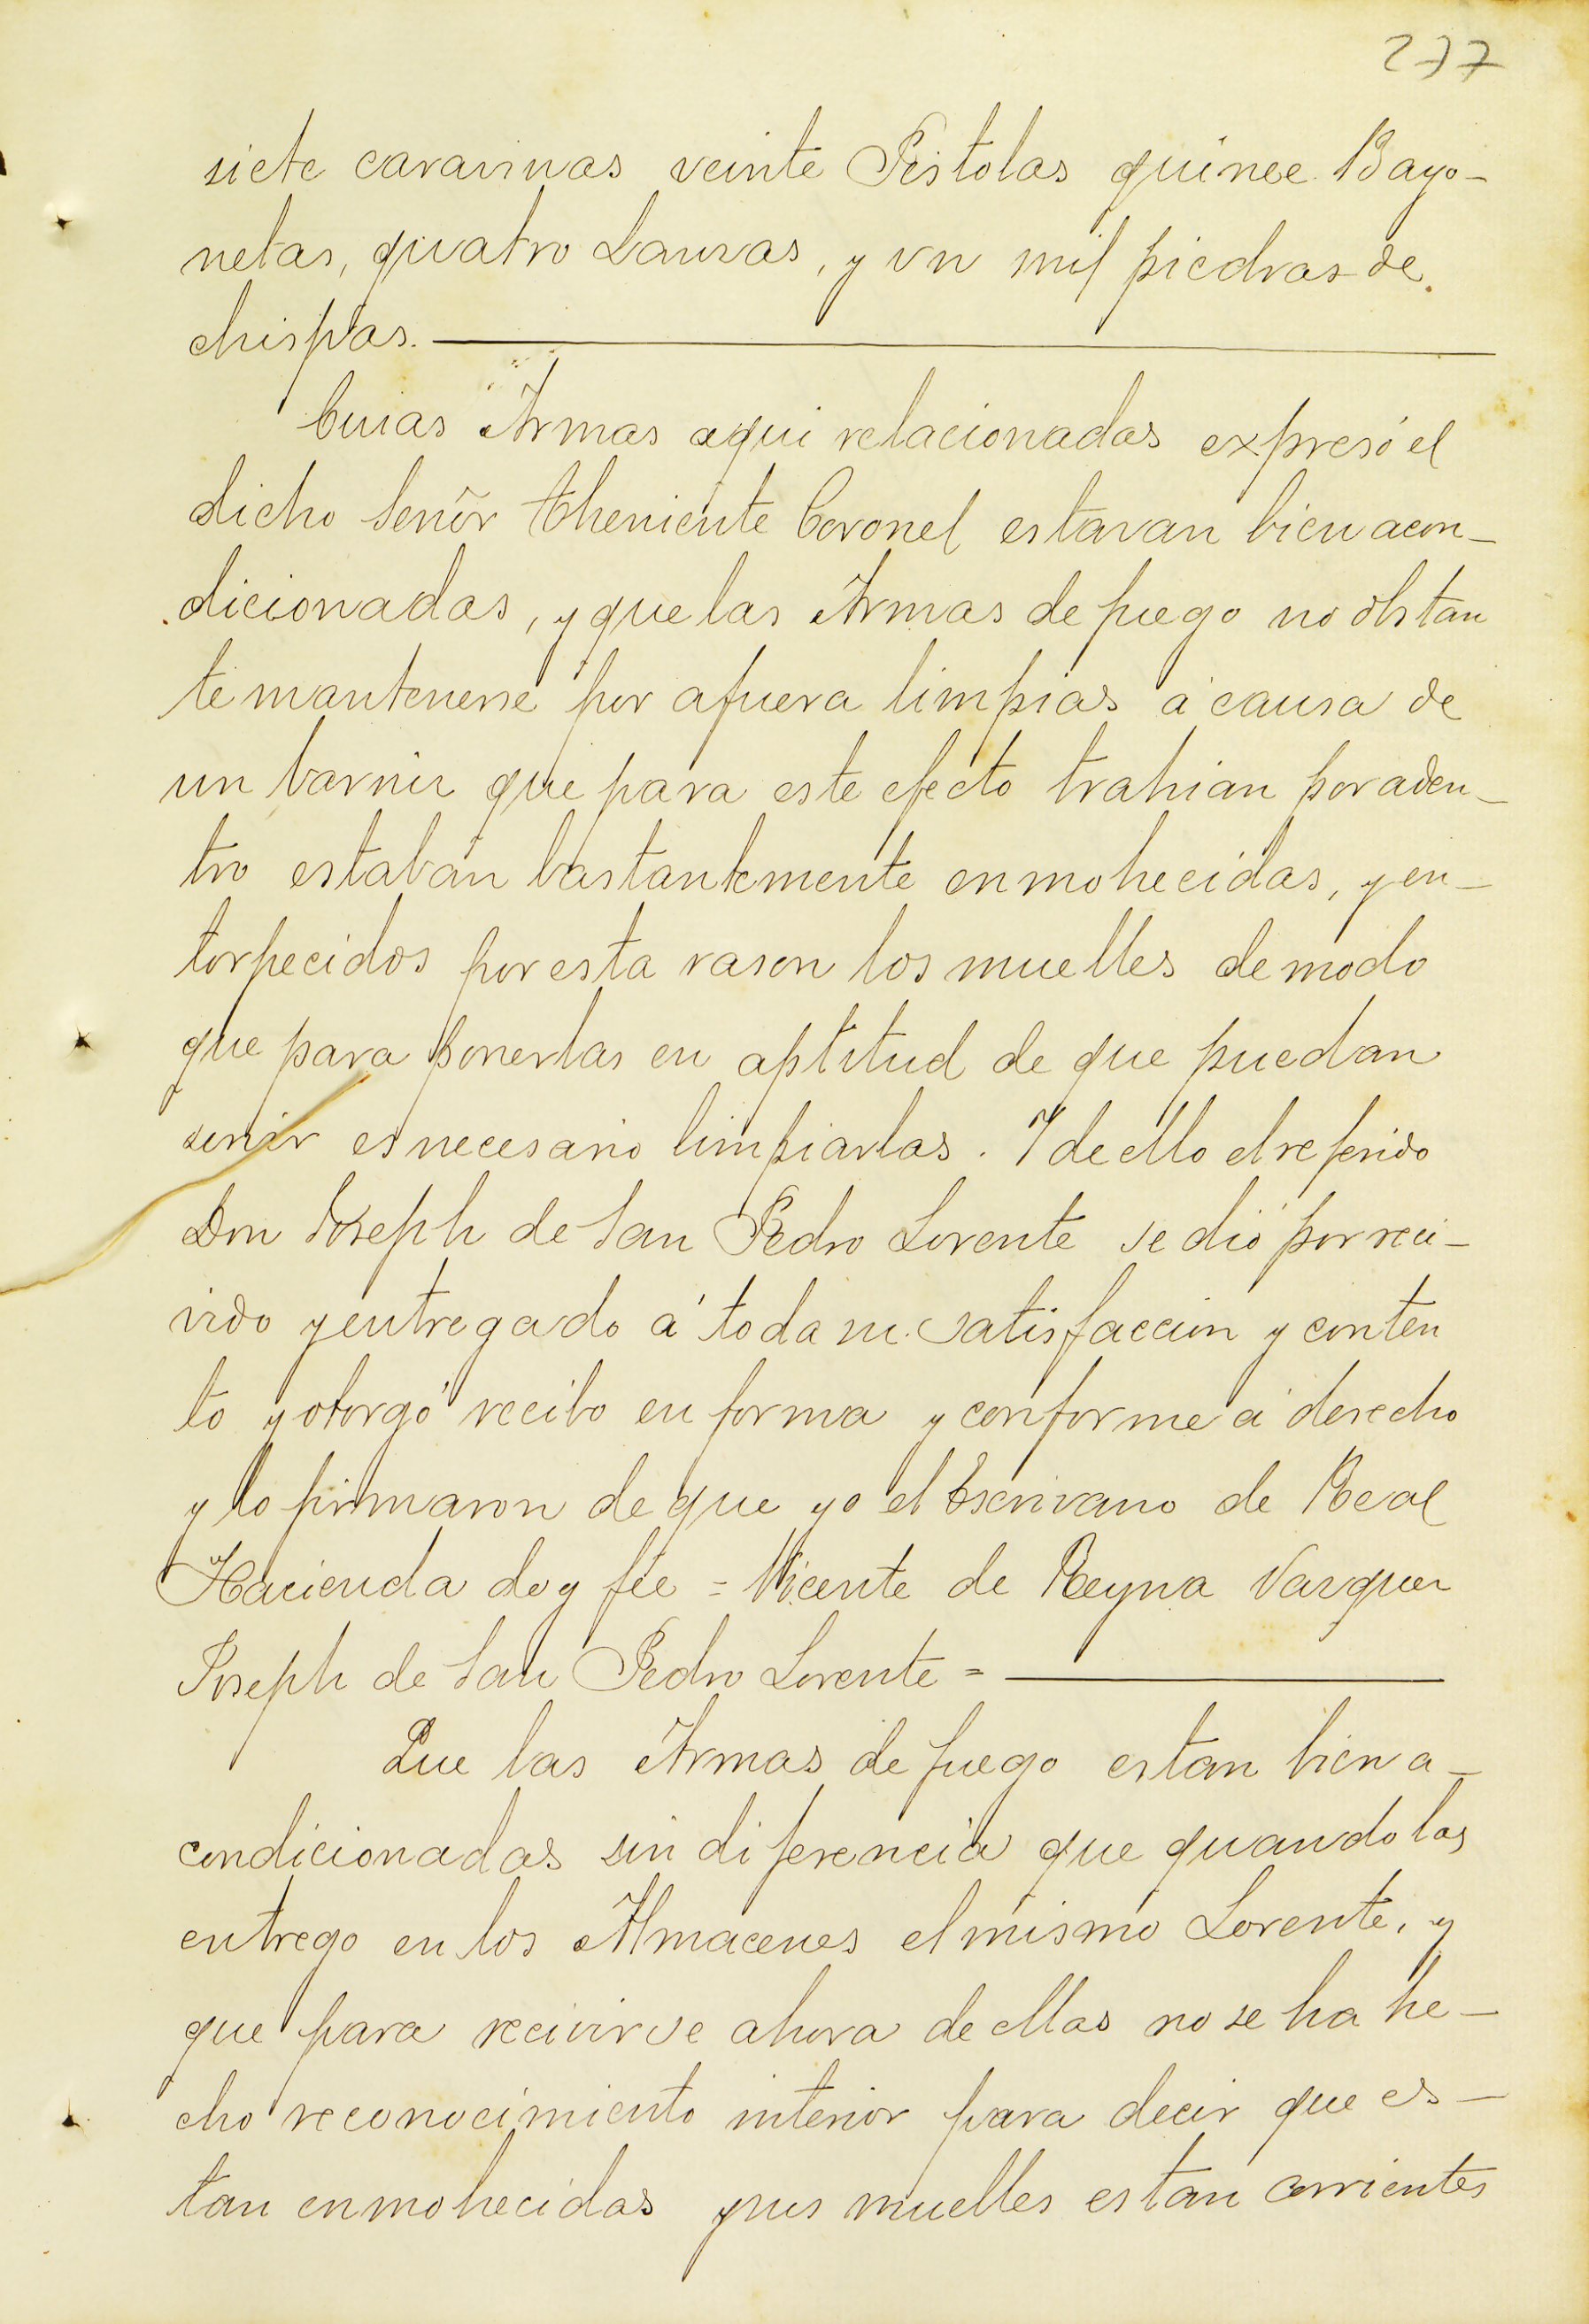 277
siete caravinas veinte Pistolas quince Bayo-
netas, quatro Lanzas, y vn mil piedras de
chispas.
Cuias Armas aqui relacionadas expresó el
dicho Señor Theniente Coronel estavan bien acon-
dicionadas, y que las Armas de fuego no obstan
te mantenerse por afuera limpias á causa de
un barniz que para este efecto trahian por aden-
tro estaban bastantemente enmohecidas, y en-
torpecidos por esta rason los muelles de modo
que para ponerlas en aptitud de que puedan
servir es necesario limpiarlas. Y de ello el referido
Don Joseph de San Pedro Lorente se dió por reci-
vido y entregado á toda su satisfaccion y conten
to y otorgó recibo en forma y conforme á derecho
y lo firmaron de que yo el Escrivano de Real
Hacienda doy fée = Vicente de Reyna Vazquez
Joseph de San Pedro Lorente =
Que las Armas de fuego estan bien a-
condicionadas sin diferencia que quando las
entrego en los Almacenes el mismo Lorente, y
que para recivirse ahora de ellas no se ha he-
cho reconocimiento interior para decir que es-
tan enmohecidas y sus muelles estan corrientes